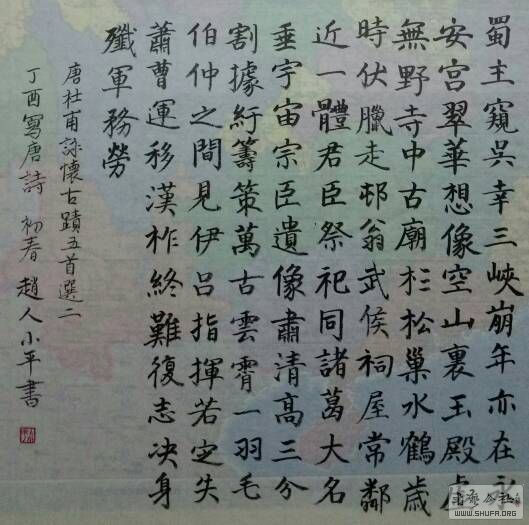 蜀主窺吳幸三峽崩年亦在永
安宮翠華想像空山裏玉殿虛
無野寺中古廟杉松巢水鶴歲
時伏臘走邨翁武侯祠屋常鄰
近一體君臣祭祀同諸葛大名
垂宇宙宗臣遺像肅清高三分
割據紆籌策萬古雲霄一羽毛
伯仲之間見伊呂指揮若定失
蕭曹運移漢柞終難復志决身
殲軍務勞
唐杜甫詠懷古蹟五首選二
丁酉寫唐詩 初春 趙人小平書
WWW.SHUFA.ORG